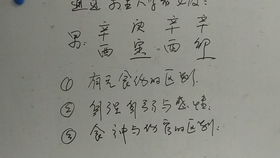 男: 辛 庚 辛 辛
酉 寅 酉 卯
① 有无食伤的区别.
② 身强身弱与感情.
③ 食神与伤官的区别: